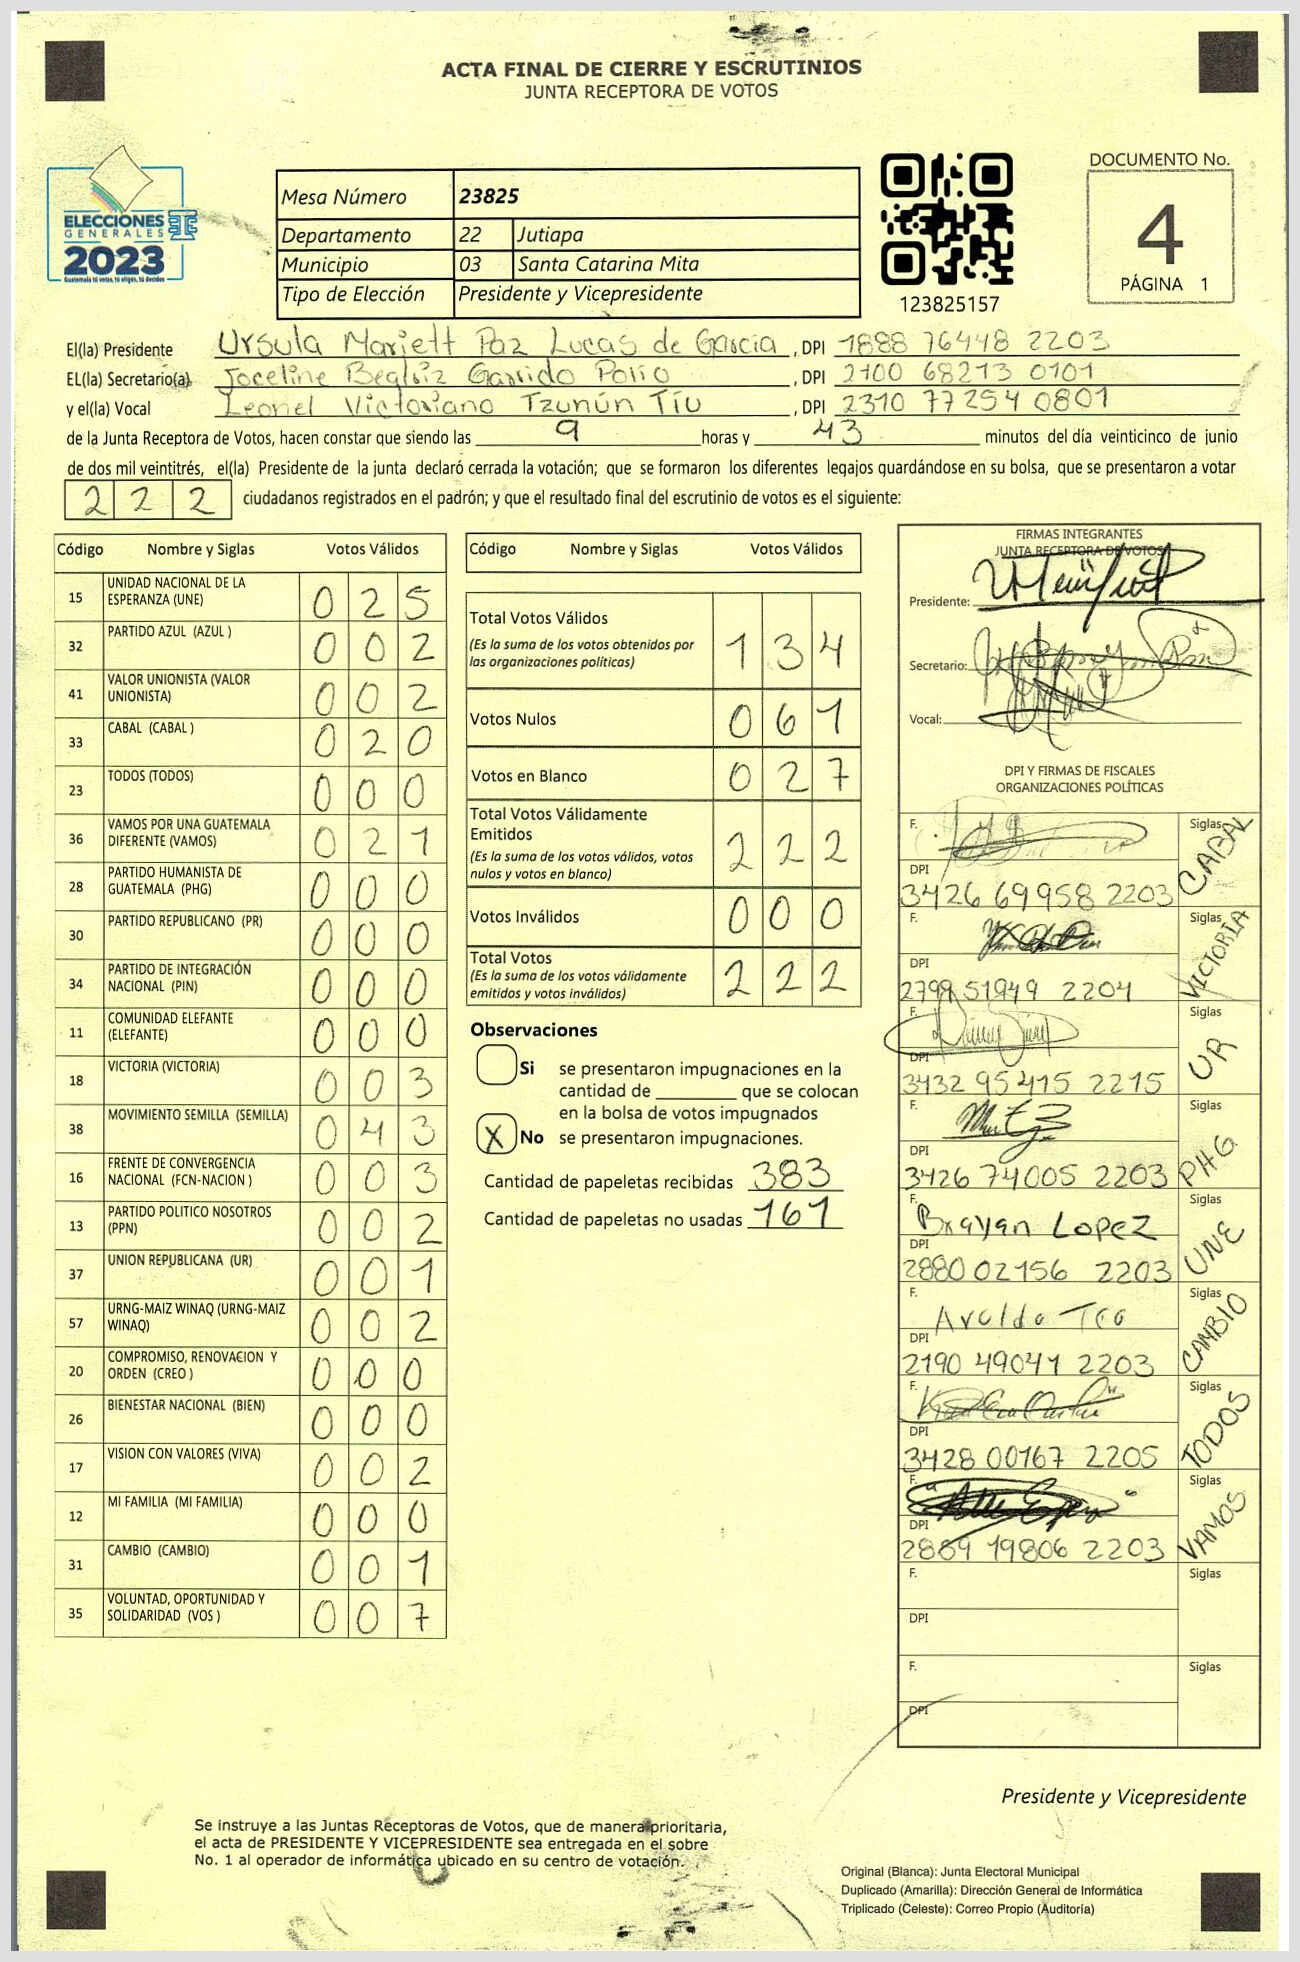 ACTA FINAL DE CIERRE Y ESCRUTINIOS
JUNTA RECEPTORA DE VOTOS
ELECCIONES
GENERALES
2023
Guatemala tú votas, tú eliges, tú decides
Mesa Número 23825
Departamento 22 Jutiapa
Municipio 03 Santa Catarina Mita
Tipo de Elección Presidente y Vicepresidente
123825157
DOCUMENTO No.
4
PÁGINA 1
El(la) Presidente Ursula Mariett Paz Lucas de Garcia , DPI 1888 76448 2203
EL(la) Secretario(a) Joceline Beatriz Garrido Polio , DPI 2100 68213 0101
y el(la) Vocal Leonel Victoriano Tzunún Tíu , DPI 2310 77254 0801
de la Junta Receptora de Votos, hacen constar que siendo las 9 horas y 43 minutos del día veinticinco de junio
de dos mil veintitrés, el(la) Presidente de la junta declaró cerrada la votación; que se formaron los diferentes legajos guardándose en su bolsa, que se presentaron a votar
222 ciudadanos registrados en el padrón; y que el resultado final del escrutinio de votos es el siguiente:
Código Nombre y Siglas Votos Válidos
15 UNIDAD NACIONAL DE LA ESPERANZA (UNE) 0 2 5
32 PARTIDO AZUL (AZUL ) 0 0 2
41 VALOR UNIONISTA (VALOR UNIONISTA) 0 0 2
33 CABAL (CABAL ) 0 2 0
23 TODOS (TODOS) 0 0 0
36 VAMOS POR UNA GUATEMALA DIFERENTE (VAMOS) 0 2 1
28 PARTIDO HUMANISTA DE GUATEMALA (PHG) 0 0 0
30 PARTIDO REPUBLICANO (PR) 0 0 0
34 PARTIDO DE INTEGRACIÓN NACIONAL (PIN) 0 0 0
11 COMUNIDAD ELEFANTE (ELEFANTE) 0 0 0
18 VICTORIA (VICTORIA) 0 0 3
38 MOVIMIENTO SEMILLA (SEMILLA) 0 4 3
16 FRENTE DE CONVERGENCIA NACIONAL (FCN-NACION ) 0 0 3
13 PARTIDO POLITICO NOSOTROS (PPN) 0 0 2
37 UNION REPUBLICANA (UR) 0 0 1
57 URNG-MAIZ WINAQ (URNG-MAIZ WINAQ) 0 0 2
20 COMPROMISO, RENOVACION Y ORDEN (CREO ) 0 0 0
26 BIENESTAR NACIONAL (BIEN) 0 0 0
17 VISION CON VALORES (VIVA) 0 0 2
12 MI FAMILIA (MI FAMILIA) 0 0 0
31 CAMBIO (CAMBIO) 0 0 1
35 VOLUNTAD, OPORTUNIDAD Y SOLIDARIDAD (VOS ) 0 0 7
Código Nombre y Siglas Votos Válidos
Total Votos Válidos
(Es la suma de los votos obtenidos por
las organizaciones políticas) 1 3 4
Votos Nulos 0 6 1
Votos en Blanco 0 2 7
Total Votos Válidamente
Emitidos
(Es la suma de los votos válidos, votos
nulos y votos en blanco) 2 2 2
Votos Inválidos 0 0 0
Total Votos
(Es la suma de los votos válidamente
emitidos y votos inválidos) 2 2 2
Observaciones
Si se presentaron impugnaciones en la
cantidad de ________ que se colocan
en la bolsa de votos impugnados
X No se presentaron impugnaciones.
Cantidad de papeletas recibidas 383
Cantidad de papeletas no usadas 161
FIRMAS INTEGRANTES
JUNTA RECEPTORA DE VOTOS
Presidente:
Secretario:
Vocal:
DPI Y FIRMAS DE FISCALES
ORGANIZACIONES POLÍTICAS
F. Siglas CABAL
DPI
3426 69958 2203
F. Siglas VICTORIA
DPI
2799 51949 2204
F. Siglas UR
DPI
3432 95415 2215
F. Siglas PHG
DPI
3426 74005 2203
F. Brayan Lopez Siglas UNE
DPI
2880 02156 2203
F. Aroldo Teo Siglas CAMBIO
DPI
2190 49041 2203
F. Siglas TODOS
DPI
3428 00167 2205
F. Siglas VAMOS
DPI
2889 19806 2203
F. Siglas
DPI
F. Siglas
DPI
Presidente y Vicepresidente
Se instruye a las Juntas Receptoras de Votos, que de manera prioritaria,
el acta de PRESIDENTE Y VICEPRESIDENTE sea entregada en el sobre
No. 1 al operador de informática ubicado en su centro de votación.
Original (Blanca): Junta Electoral Municipal
Duplicado (Amarilla): Dirección General de Informática
Triplicado (Celeste): Correo Propio (Auditoría)